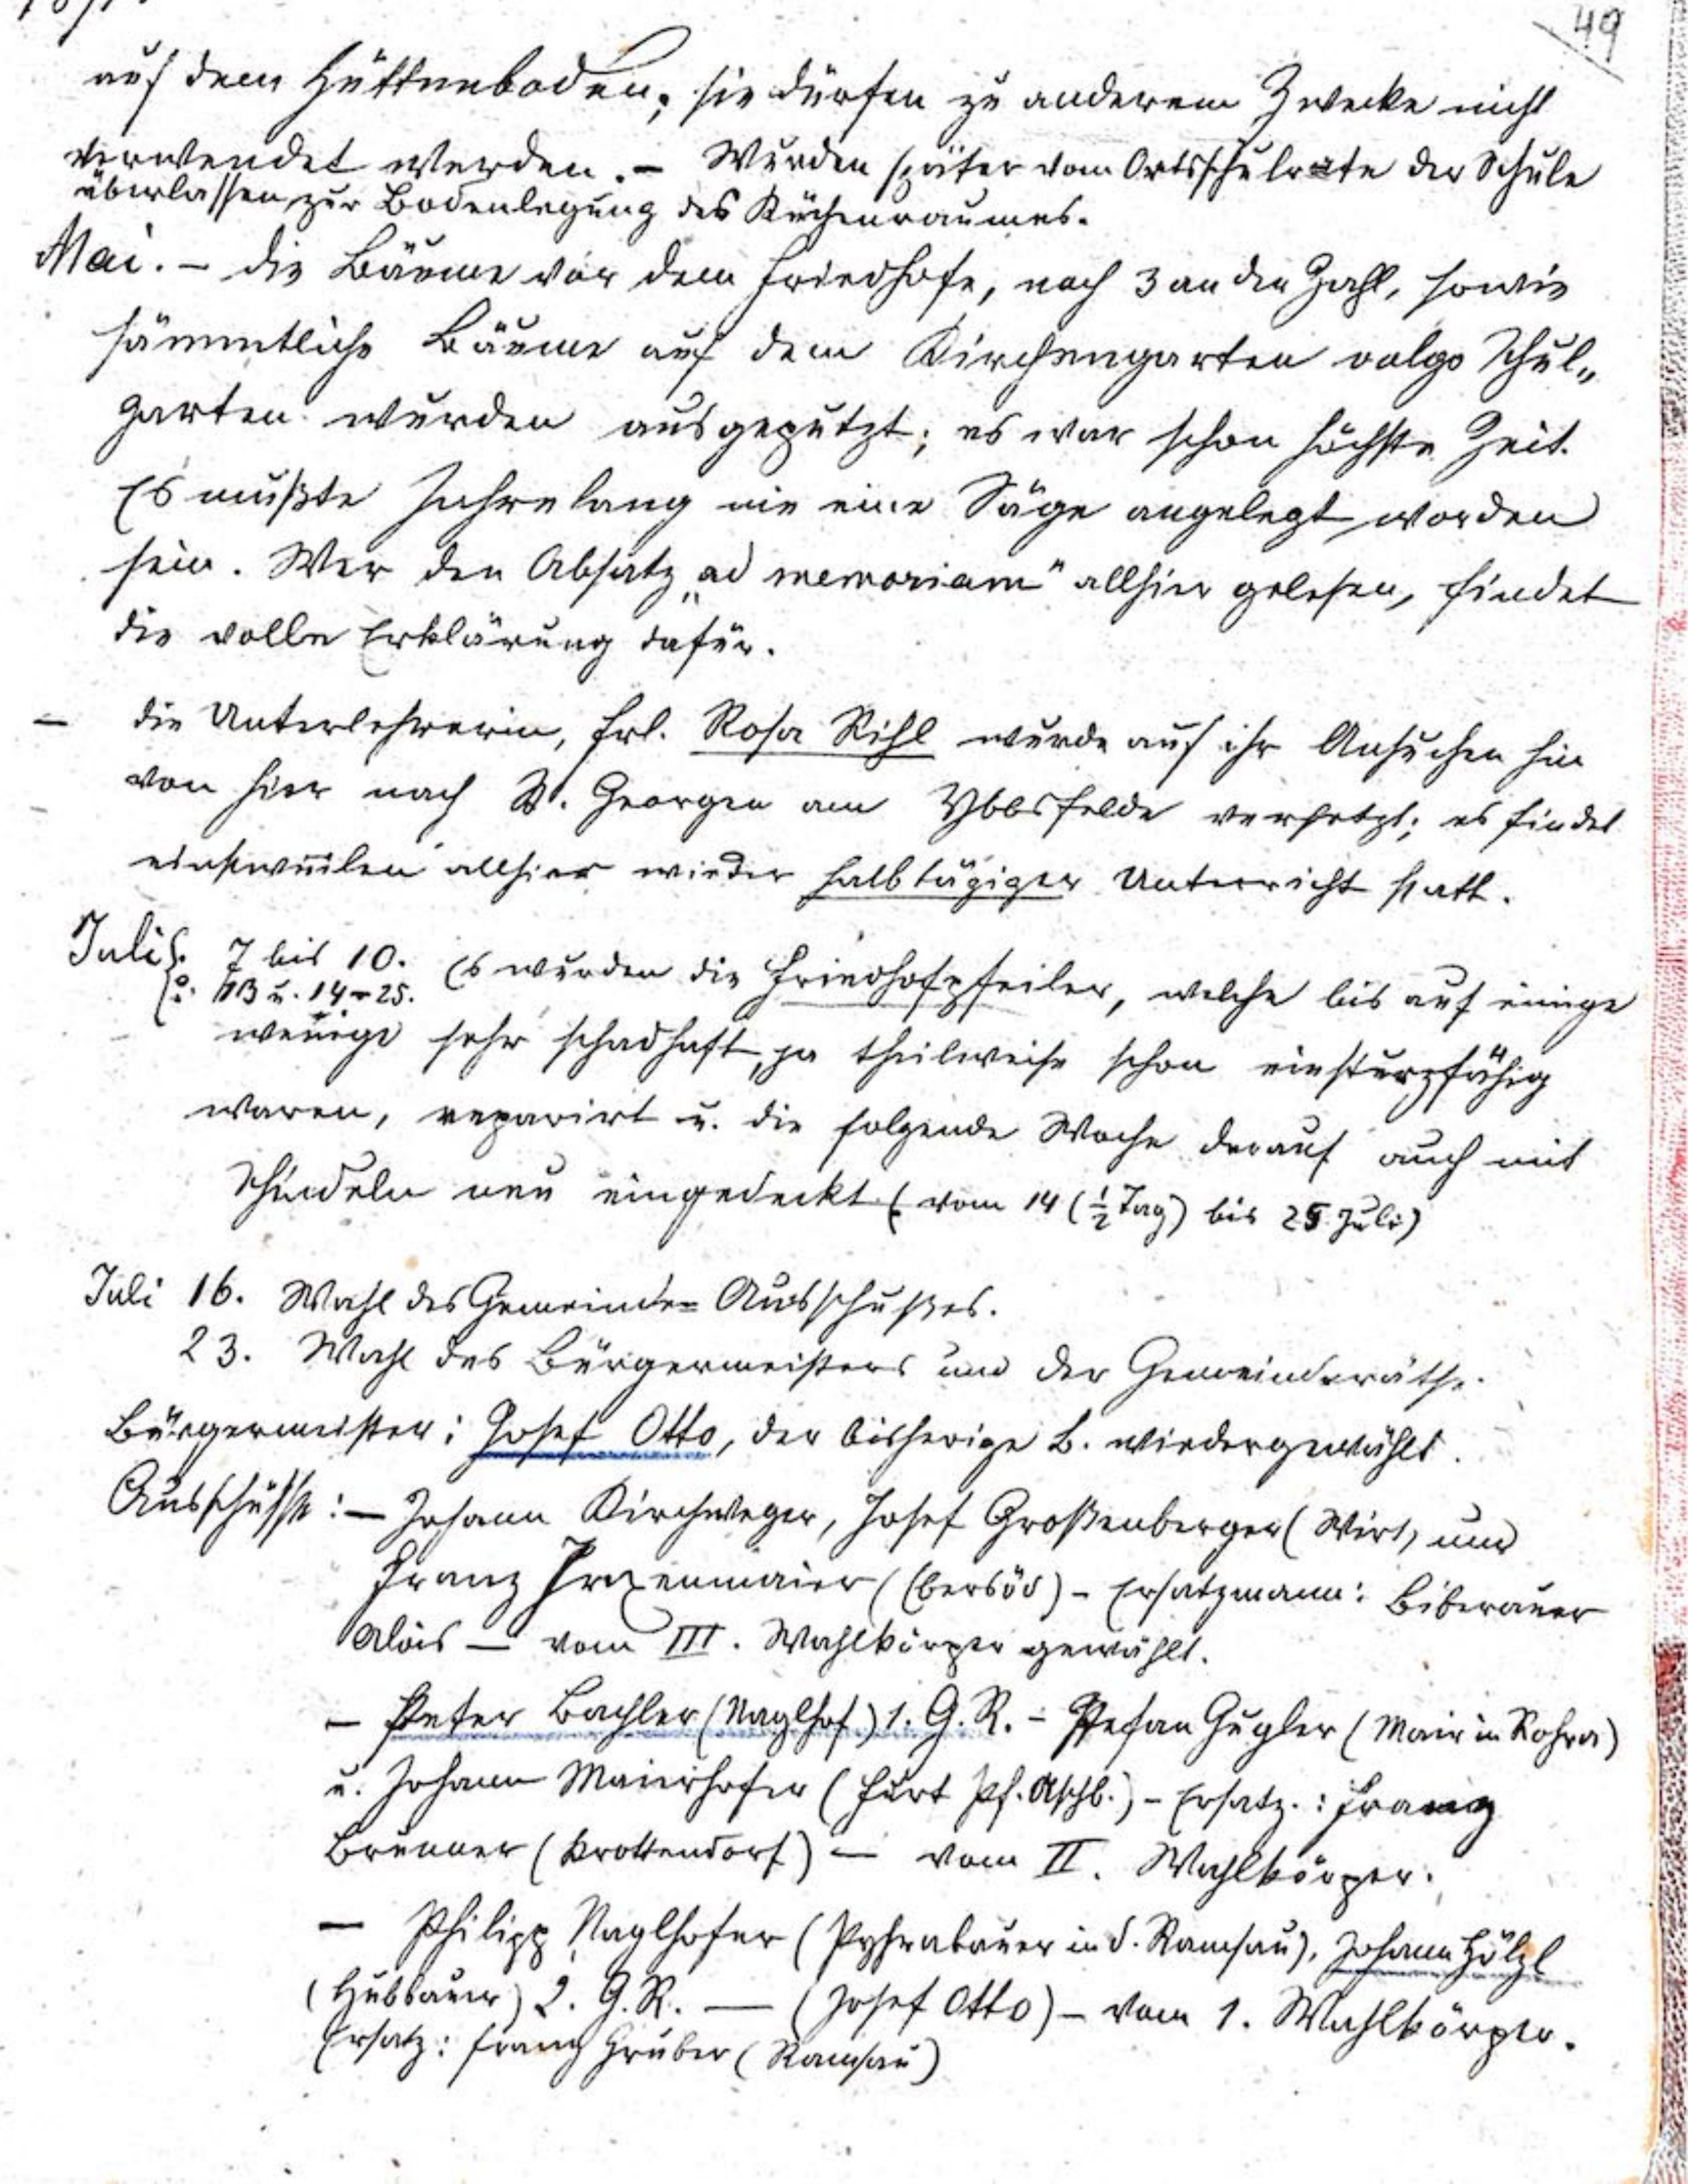 49
auf dem Hüttenboden; sie dürfen zu anderem Zwecke nicht
verwendet werden. – Wurden später vom Ortsschulrate der Schule
überlassen zur Bodenlegung des Küchenraumes.
Mai. – die Bäume vor dem Friedhofe, noch 3 an der Zahl, sowie
sämmtliche Bäume auf dem Kirchengarten volgo Schul„
garten wurden ausgeputzt; es war schon höchste Zeit.
Es mußte Jahrelang nie eine Säge angelegt worden
sein. Wer den Absatz „ad memoriam" allhier gelesen, findet
die volle Erklärung dafür.
– die Unterlehrerin, Frl. Rosa Rihl wurde auf ihr Ansuchen hin
von hier nach St. Georgen am Ybbsfelde versetzt; es findet
einstweilen allhier wieder halbtägiger Unterricht statt.
Juli 7 bis 10. Es wurden die Friedhofpfeiler, welche bis auf einige
u. 14–25.
wenige sehr schadhaft, ja theilweise schon einsturzfähig
waren, reparirt u. die folgende Woche darauf auch mit
Schindeln neu eingedeckt (vom 14 (½ Tag) bis 25 Juli)
Juli 16. Wahl des Gemeinde-Ausschußes.
23. Wahl des Bürgermeisters und der Gemeinderäthe.
Bürgermeister: Josef Otto, der bisherige B. wiedergewählt.
Ausschüsse: – Johann Kirchweger, Josef Großenberger (Wirt) und
Franz (Ebersöd) – Ersatzmann: Biberauer
Alois – vom III. Wahlkörper gewählt.
– Peter Bachler (Naglhof) 1. G. R. – Stefan Gugler (Mair in Rohra)
u. Johann Maierhofer (Furt Pf. Aschb.) – Ersatz.: Franz
Brunner (Krottendorf) – vom II. Wahlkörper.
– Philipp Naglhofer (Pyhrabauer in d. Ramsau), Johann Hölzl
(Hubbauer) 2. G. R. — (Josef Otto) – vom 1. Wahlkörper.
Ersatz: Franz Gruber (Ramsau)